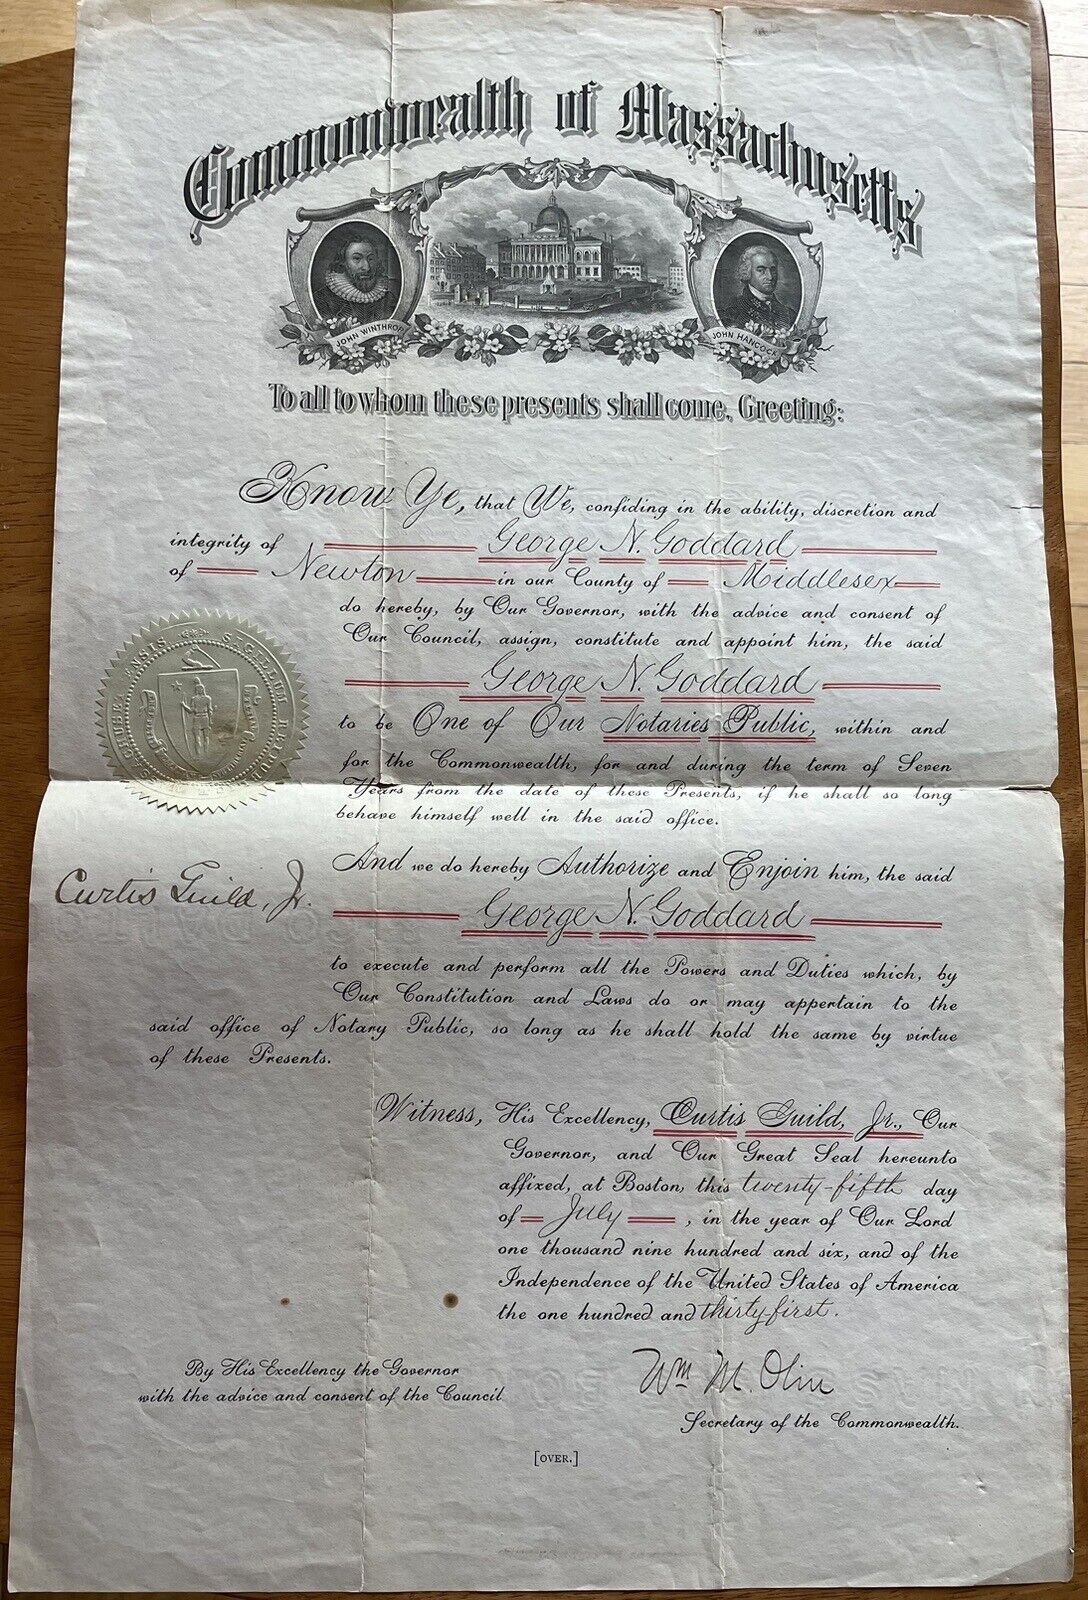 Commonwealth of Massachusetts
JOHN WINTHROP
JOHN HANCOCK
To all to whom these presents shall come, Greeting:
Know Ye, that We, confiding in the ability, discretion and
integrity of George N. Goddard
of Newton in our County of Middlesex
do hereby, by Our Governor, with the advice and consent of
Our Council, assign, constitute and appoint him, the said
George N. Goddard
to be One of Our Notaries Public, within and
for the Commonwealth, for and during the term of Seven
Years from the date of these Presents, if he shall so long
behave himself well in the said office.
And we do hereby Authorize and Enjoin him, the said
Curtis Guild, Jr.
George N. Goddard
to execute and perform all the Powers and Duties which, by
Our Constitution and Laws do or may appertain to the
said office of Notary Public, so long as he shall hold the same by virtue
of these Presents.
Witness, His Excellency, Curtis Guild, Jr., Our
Governor, and Our Great Seal hereunto
affixed, at Boston, this twenty-fifth day
of July, in the year of Our Lord
one thousand nine hundred and six, and of the
Independence of the United States of America
the one hundred and thirty-first.
By His Excellency the Governor
with the advice and consent of the Council
Wm M. Olin
Secretary of the Commonwealth.
[OVER.]